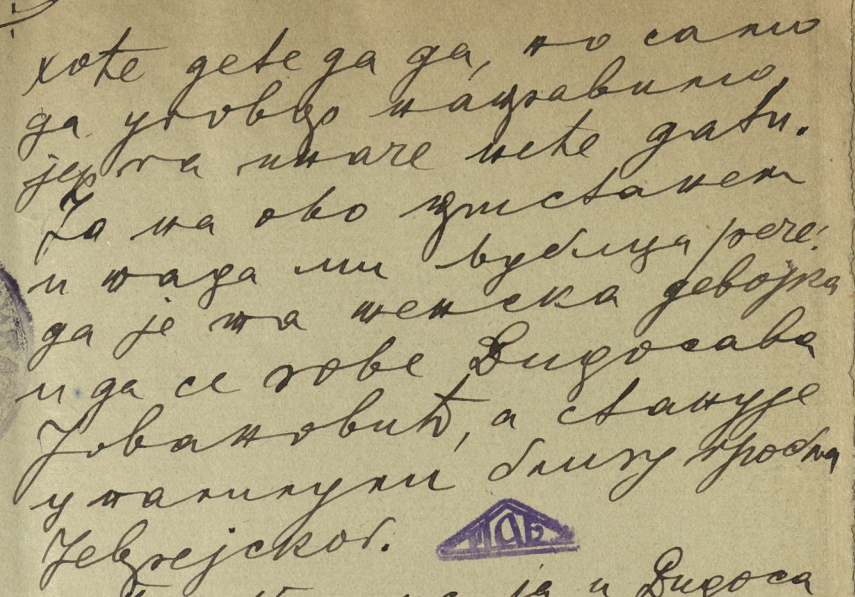 хоће дете да да, но само
да уговор направимо,
јер га иначе неће дати.
Ја на ово пристанем
и тада ми Љубица рече:
да је та женска девојка
и да се зове Видосава
Јовановић, а станује
у Палилули близу гробља
Јеврејског.
ја и Видоса